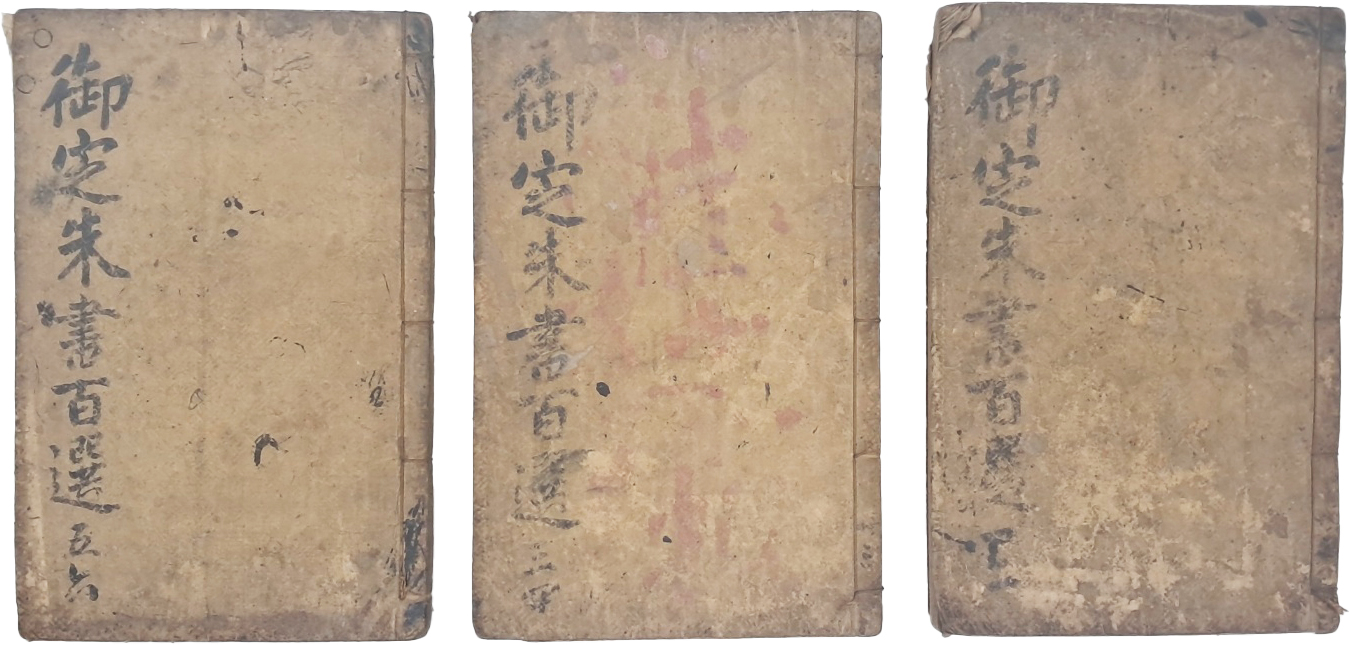 御定朱書百選 五六
御定朱書百選
御定朱書百選